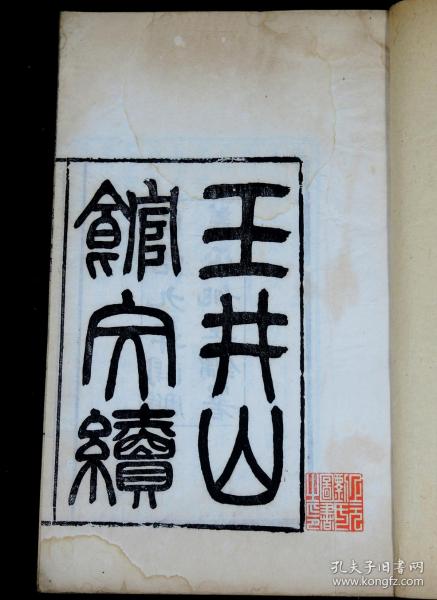 玉井山
館文續
孔夫子旧书网
www.kongfz.com